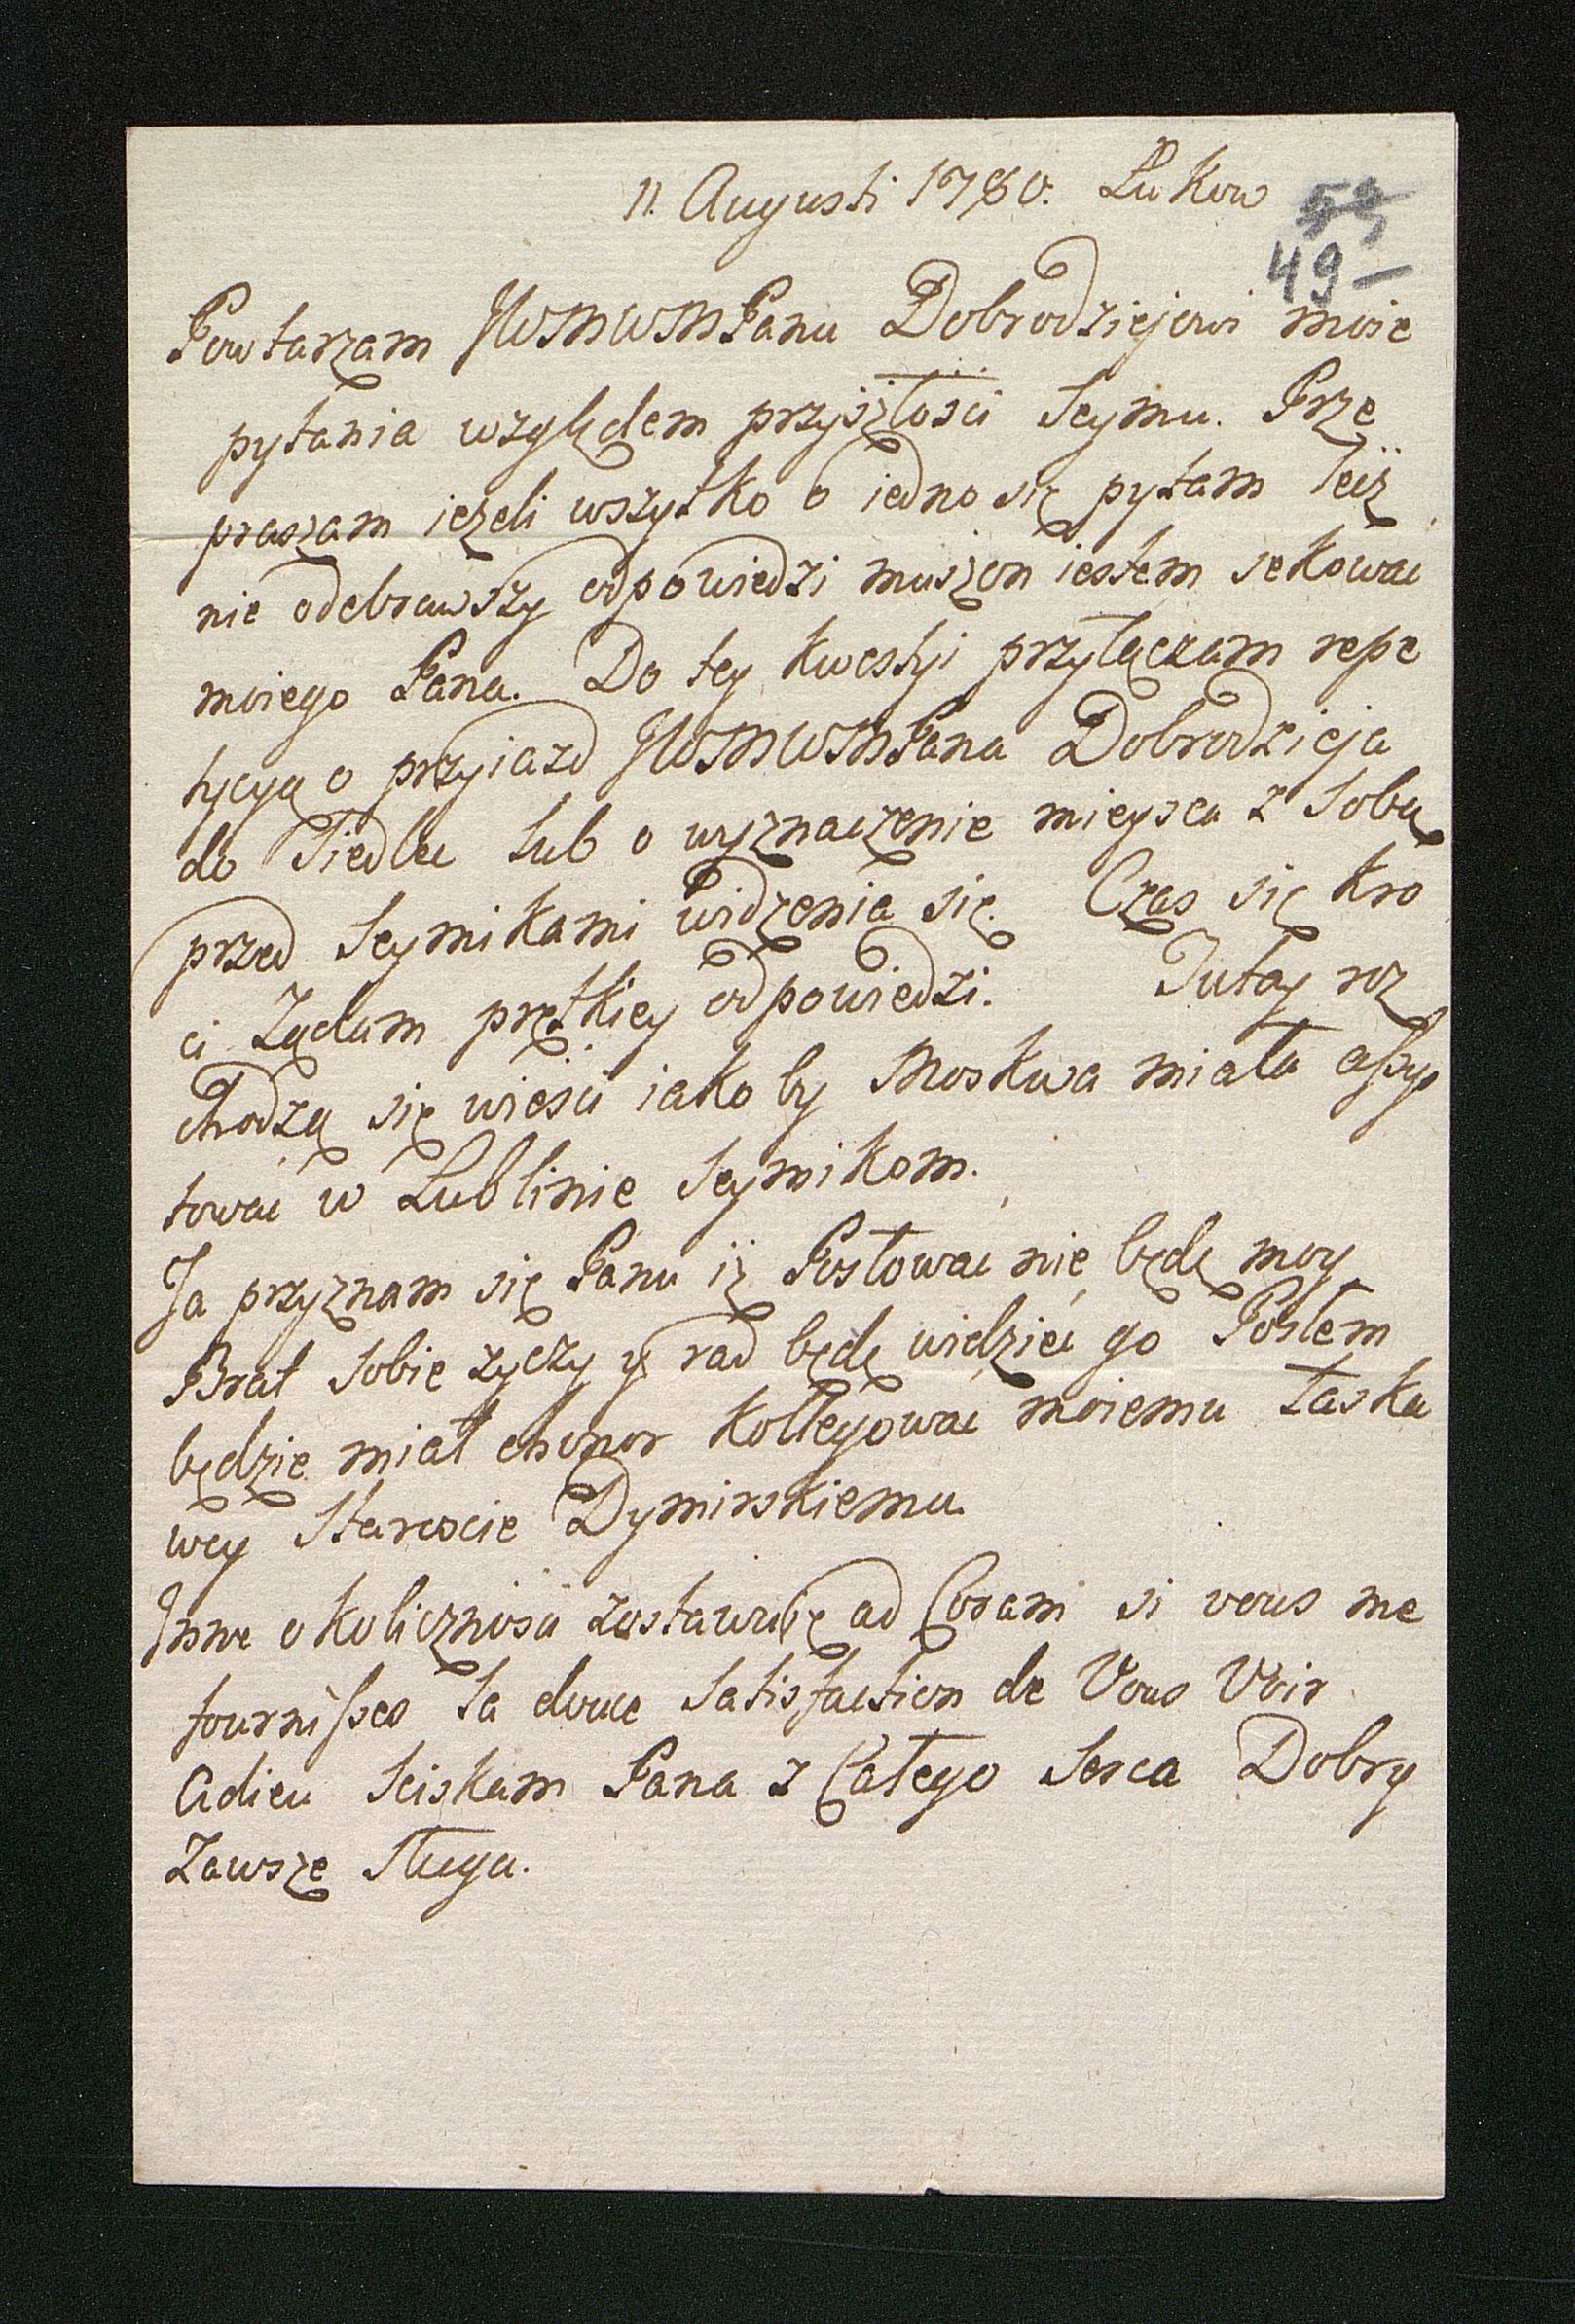 11. Augusti 1780. Łukow
59
49 —
Powtarzam JWMWMPanu Dobrodziejowi moie
pytania względem przyszłości Seymu. Prze
praszam ieżeli wszytko o iedno się pytam leiz
nie odebrawszy odpowiedzi muszon iestem sekować
moiego Pana. Do tey kwestyi przyłączam repe
tycyą o przyiazd JWMWMPana Dobrodzieja
do Siedlec lub o wyznaczenie mieysca z sobą
przed Seymikami widzenia się. Czas się kró
ci Żądam prętkiey odpowiedzi. Tutay roz
chodzą się wieści iako by Moskwa miała assys
tować w Lublinie Seymikom.
Ja przyznam się Panu iż Posłować nie będę moy
Brat sobie życzy y rad będę widzieć go Posłem
będzie miał chonor kollegować moiemu łaska
wey Staroscie Dymirskiemu.
Inne okoliczności zostawuię ad Coram si vous me
fournisses la douce Satisfaction de Vous Voir
Adieu Sciskam Pana z Całego Serca Dobry
Zawsze Sługa.